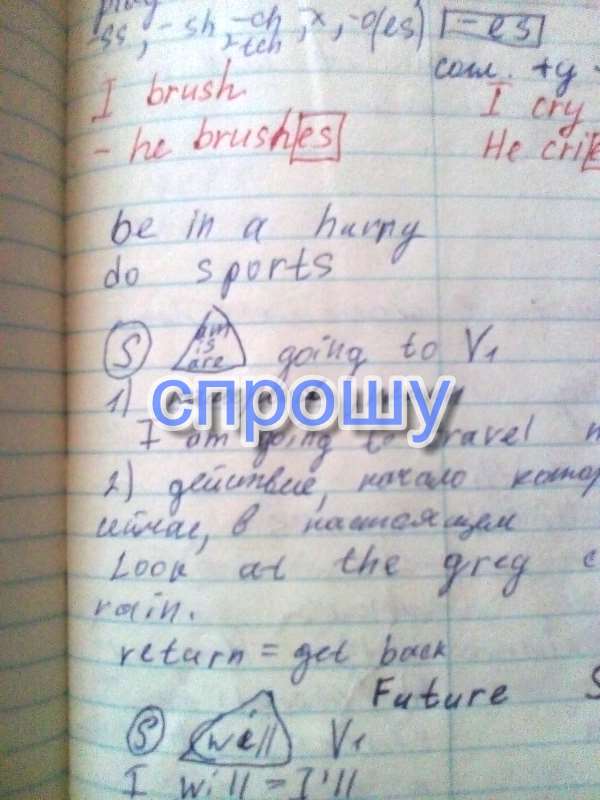 -ss, -sh, -ch, -x, -o(es) -es
-tch
согл. +y
I brush I cry
- he brushes He crie
be in a hurry
do sports
S am is are going to V1
1)
спрошу
I am going to travel
2) действие, начало котор
сейчас, в настоящем
Look at the grey c
rain.
return = get back
Future S
S will V1
I will = I'll